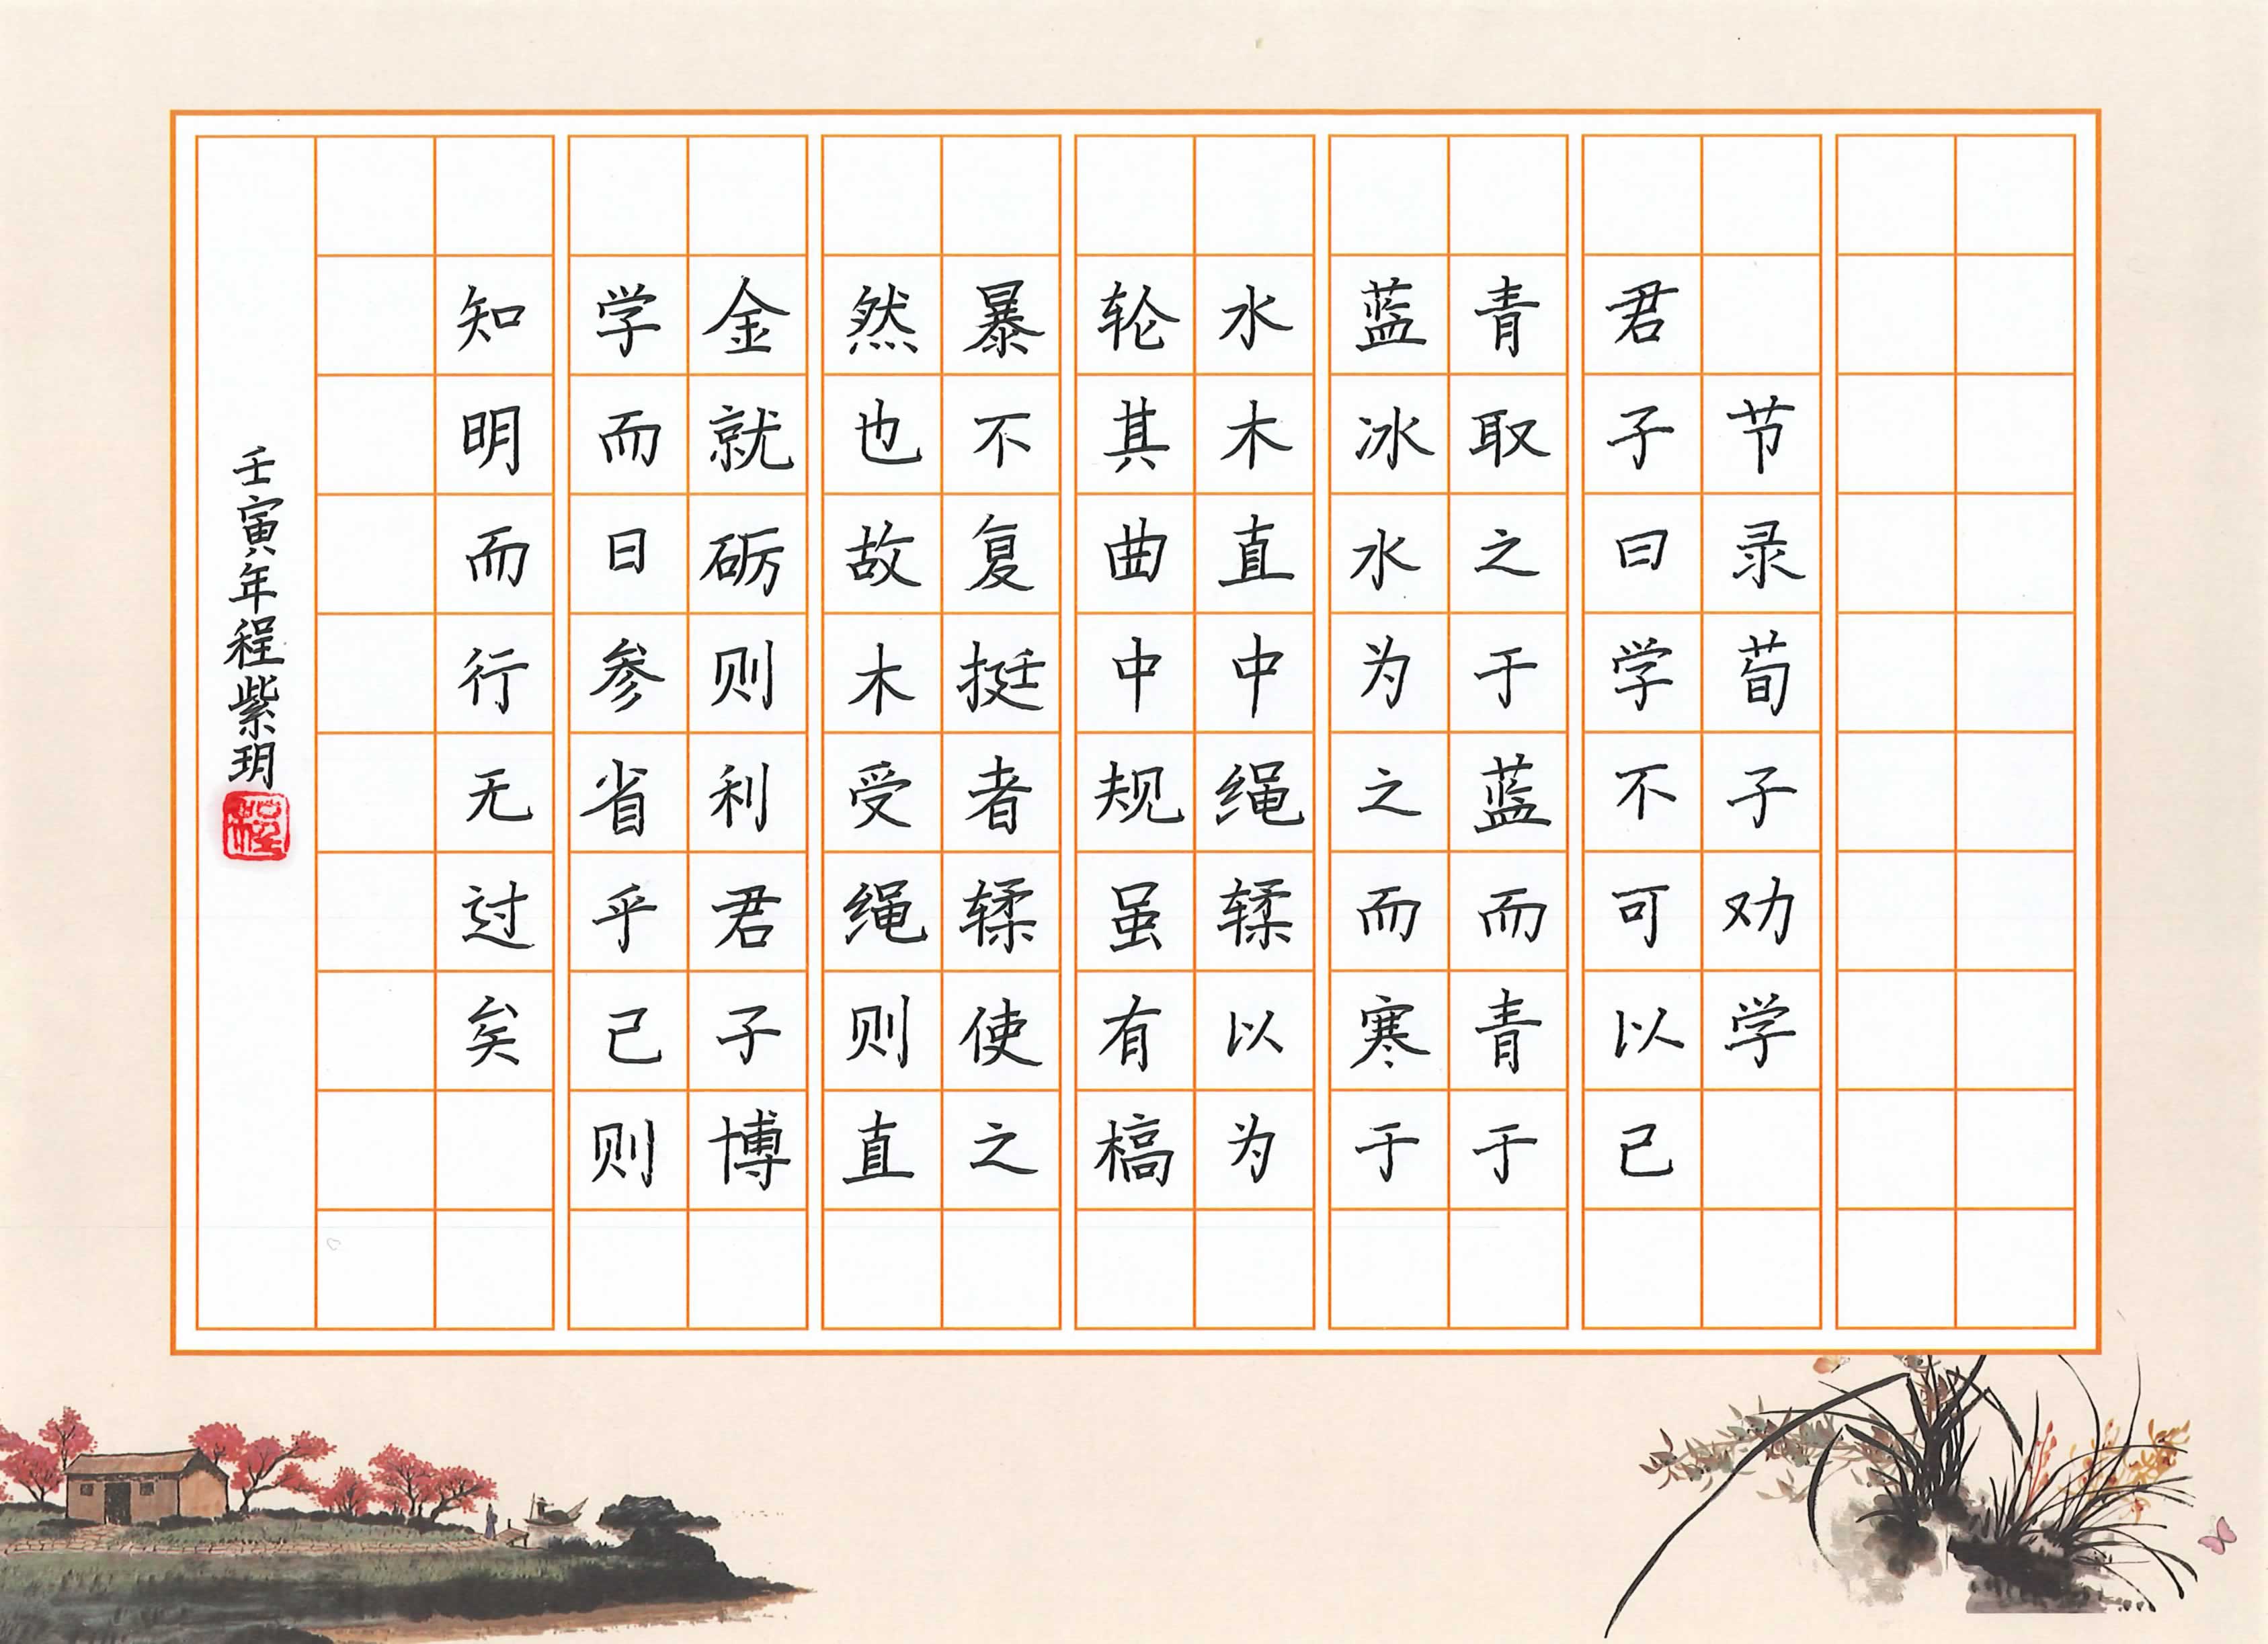 节录荀子劝学
君子曰学不可以已
青取之于蓝而青于
蓝冰水为之而寒于
水木直中绳𫐓以为
轮其曲中规虽有槁
暴不复挺者𫐓使之
然也故木受绳则直
金就砺则利君子博
学而日参省乎己则
知明而行无过矣
壬寅年程紫玥
程